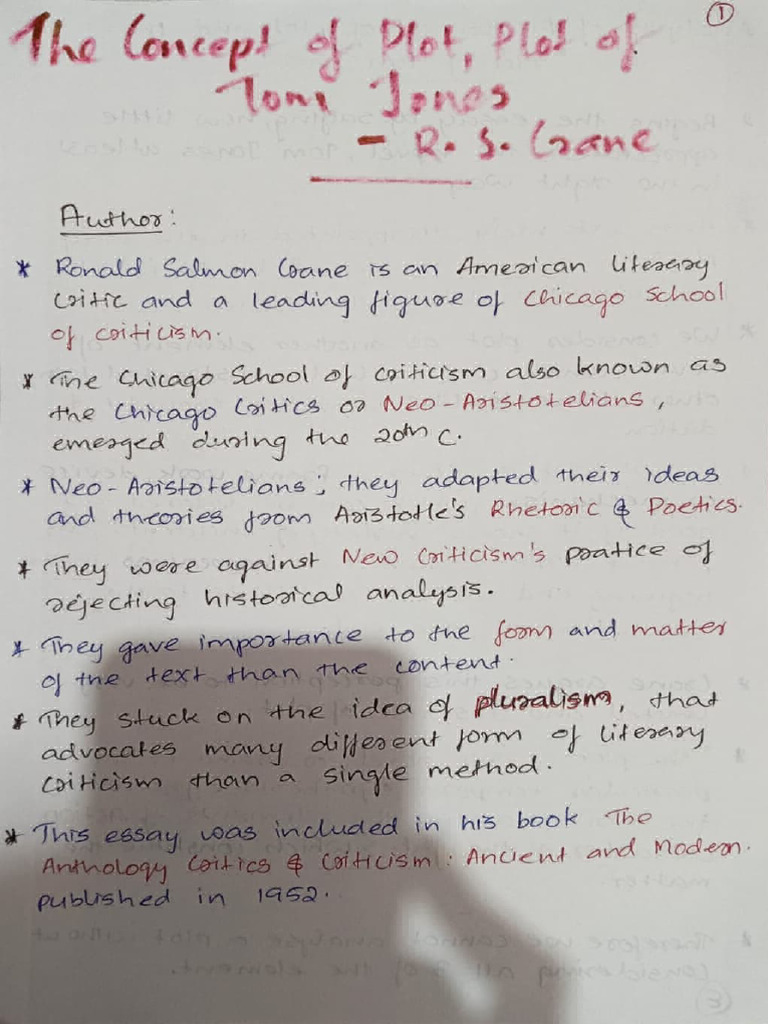 ①
The Concept of Plot, Plot of
Tom Jones
- R. S. Crane
Author:
* Ronald Salmon Crane is an American literary
critic and a leading figure of Chicago School
of criticism.
* The Chicago School of criticism also known as
the Chicago Critics or Neo-Aristotelians,
emerged during the 20th C.
* Neo-Aristotelians; they adapted their ideas
and theories from Aristotle's Rhetoric & Poetics.
* They were against New Criticism's pratice of
rejecting historical analysis.
* They gave importance to the form and matter
of the text than the content.
* They stuck on the idea of pluralism, that
advocates many different form of literary
criticism than a single method.
* This essay was included in his book The
Anthology Critics & Criticism: Ancient and Modern.
published in 1952.